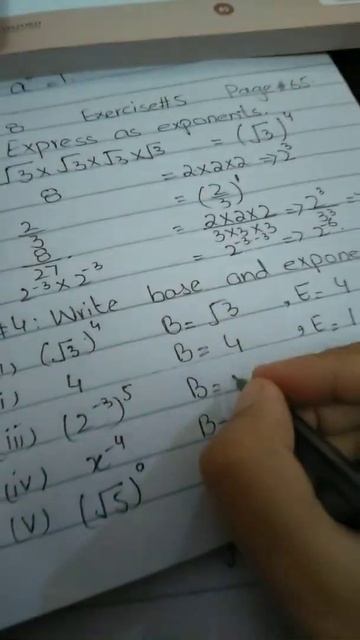 8 Exercise#5 Page#65
Express as exponents.
√3 x √3 x √3 x √3 = (√3)^4
8 = 2x2x2 => 2^3
2/3 = (2/3)^1
8/27 = 2x2x2/3x3x3 => 2^3/3^3 =
2^-3 x 2^-3 = 2^-3-3 => 2^-6
#4: Write base and expone
(√3)^4 B= √3 , E= 4
4 B= 4 , E= 1
iii) (2^-3)^5 B=
(iv) x^-4 B=
(v) (√5)^0